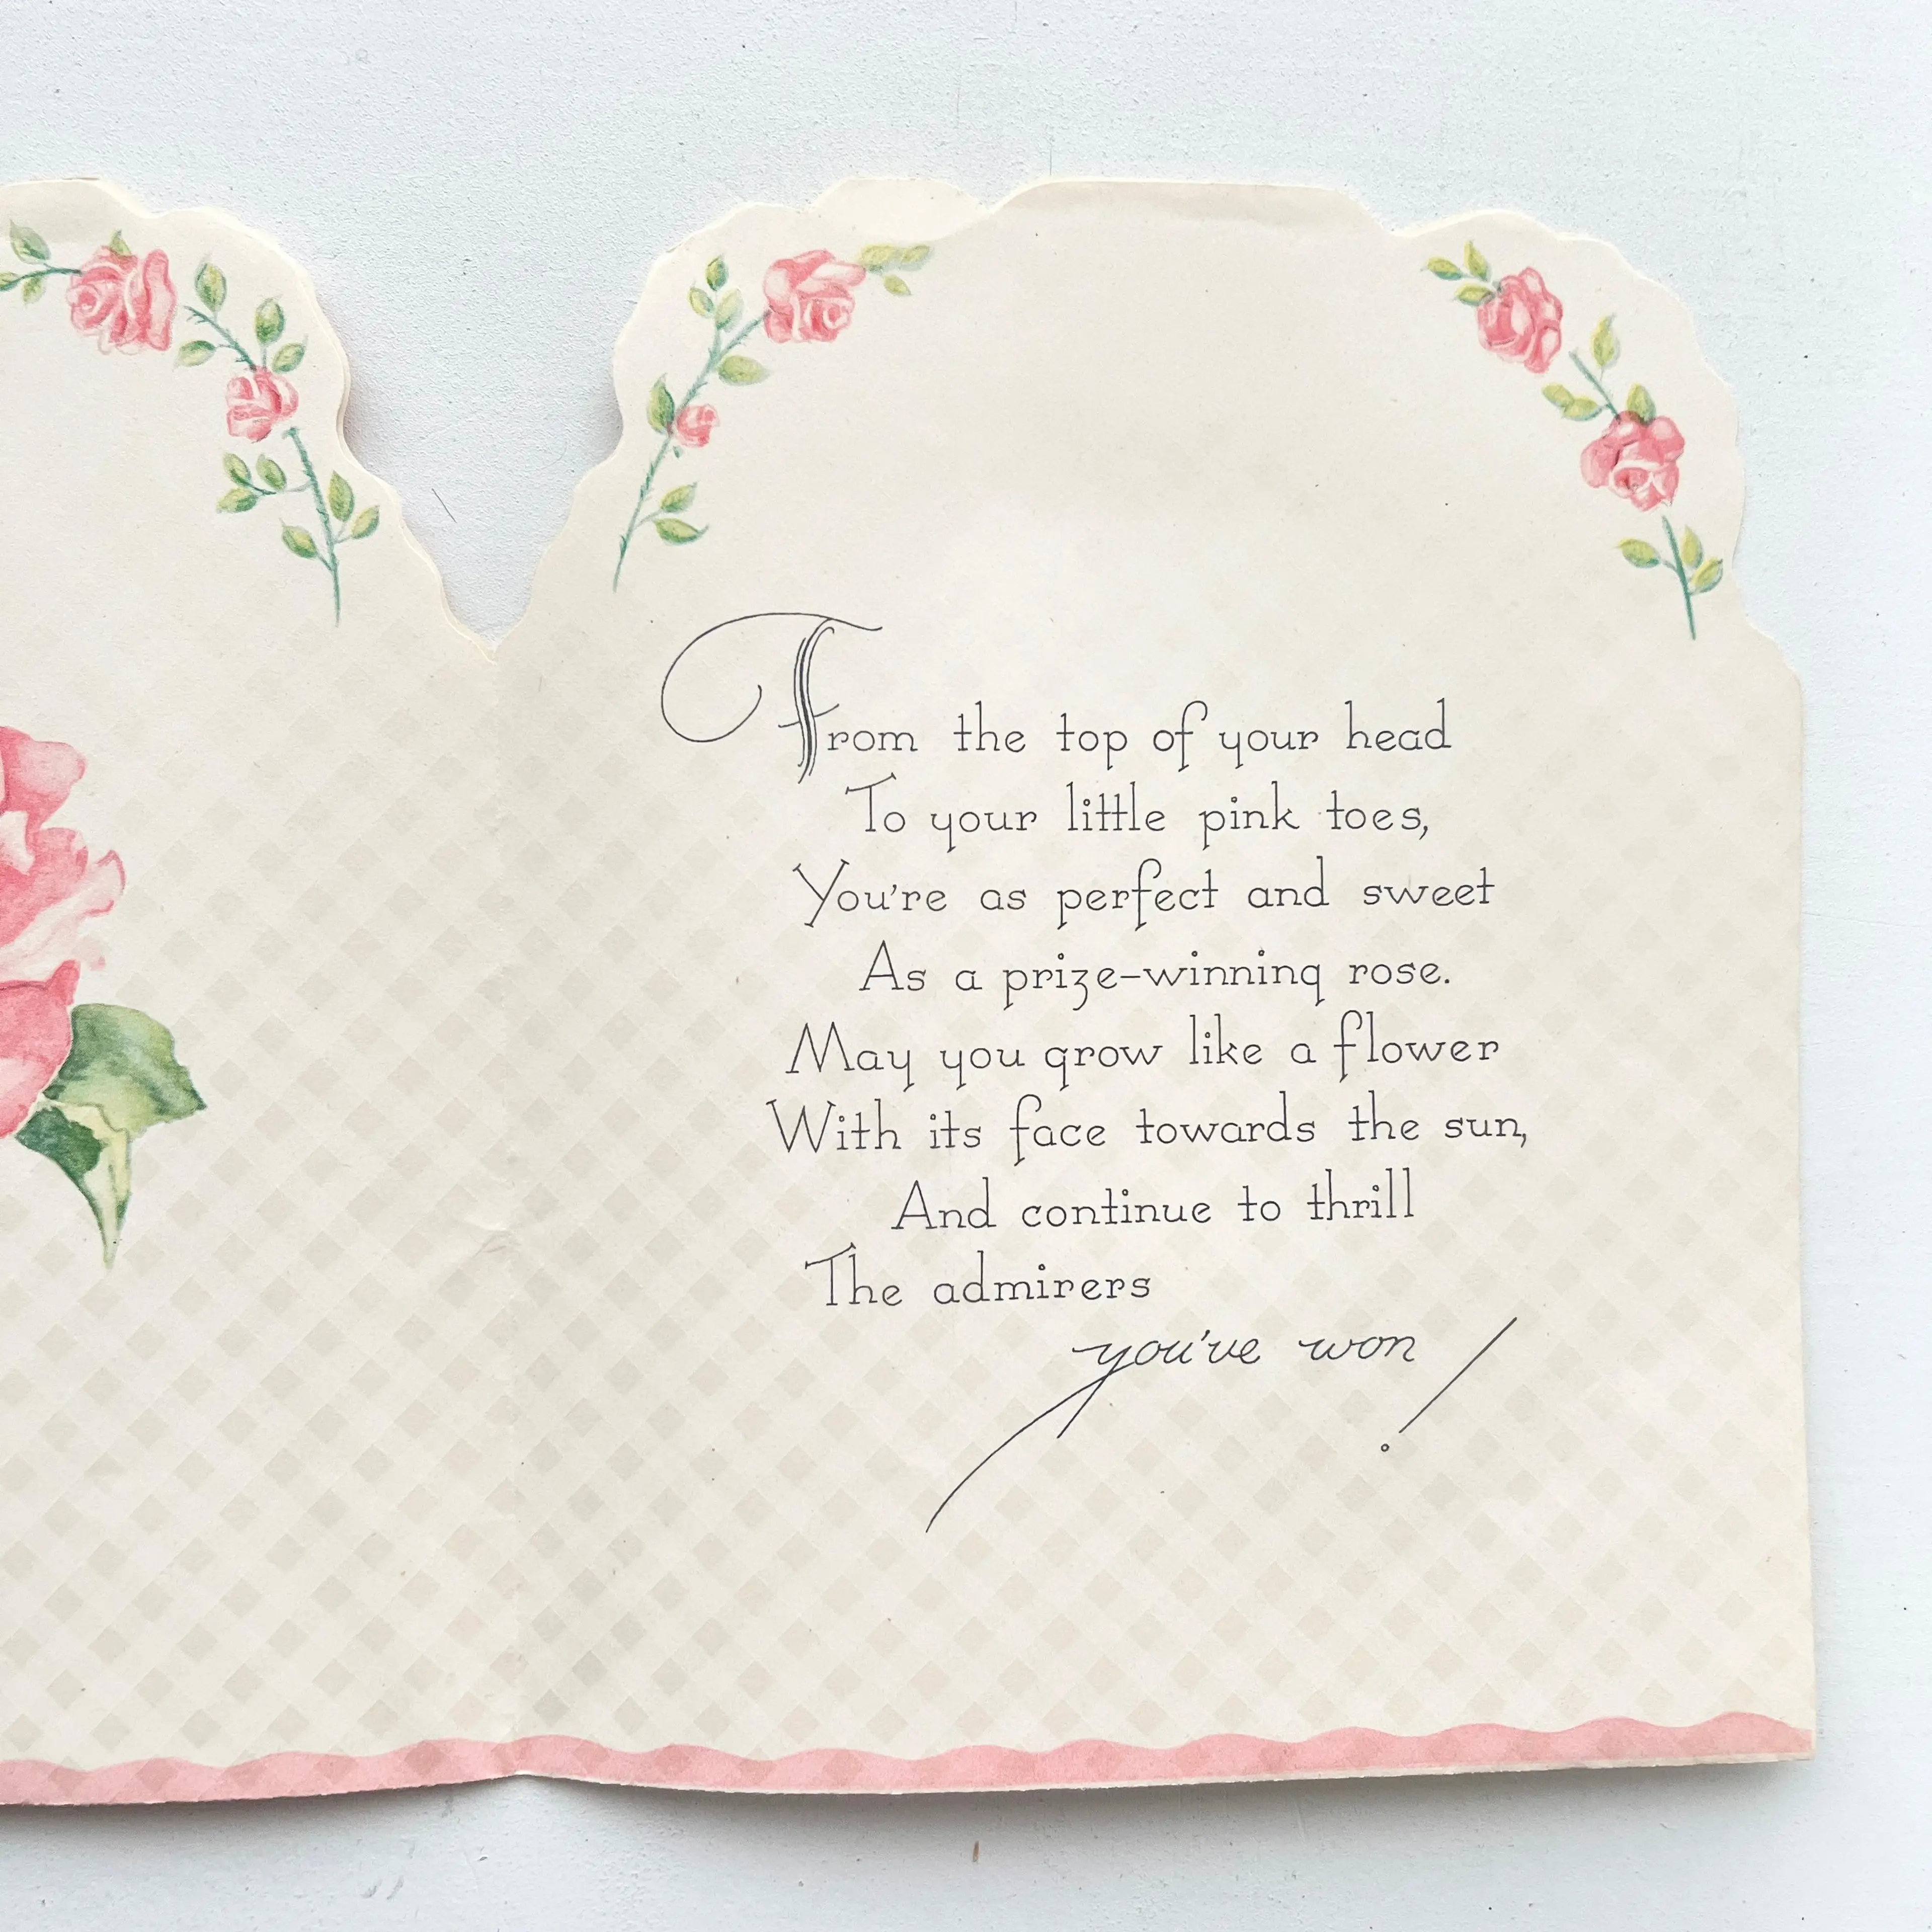 From the top of your head
To your little pink toes,
You're as perfect and sweet
As a prize-winning rose.
May you grow like a flower
With its face towards the sun,
And continue to thrill
The admirers
you've won!